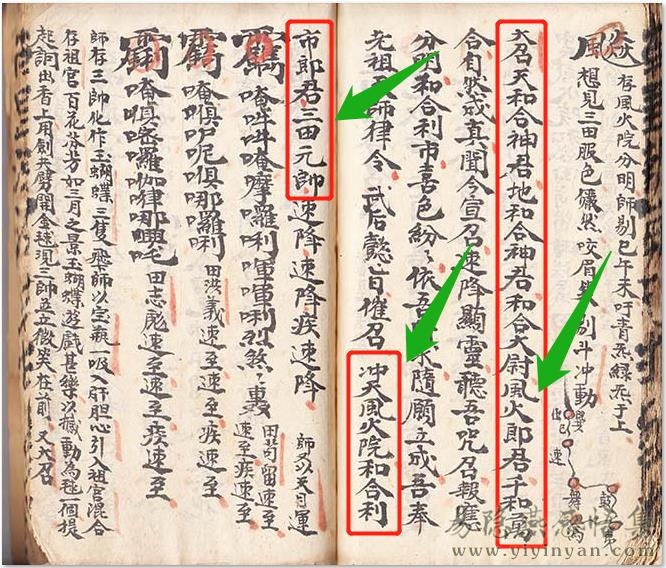 風
存風火院分明師剔巳午未吁青炁綠炁于上
想見三田服色儼然咬眉剔斗冲動
大召天和合神君地和合神君和合大尉風火郎君千和萬
合自然成真聞今宣召速降顯靈聽吾咒召報應
分明和合利市喜色紛々依吾求隨願立成吾奉
先祖天師律令 武后懿旨催召 冲天風火院和合利
市郎君三田元帥速降速降疾速降 師以天目運
唵吽唵摩囉利利烈煞々轟 田苟留速至速至疾速至
唵俱呢俱哪囉唎 田洪義速至速至疾速至
唵俱囉伽律哪吒 田志彪速至速至疾速至
師存三帥化作玉蝴蝶三隻飛師以宗瓶一吸入肝胆心引入祖宮混合
存祖宮百花芬芳如三月之景玉蝴蝶遊戲甚樂以撼動為毬個提
起詞出香上用劍劈開金毬三帥立微笑在前 又大召
易隐燕居悟集
www.yiyinyan.com